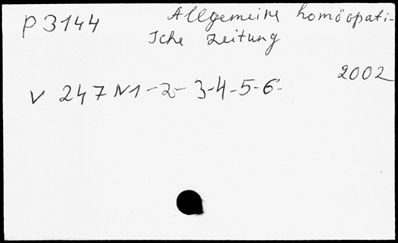 P 3144 Allgemeine homöopati-
sche Zeitung
2002
V 247 N1-2-3-4-5-6-